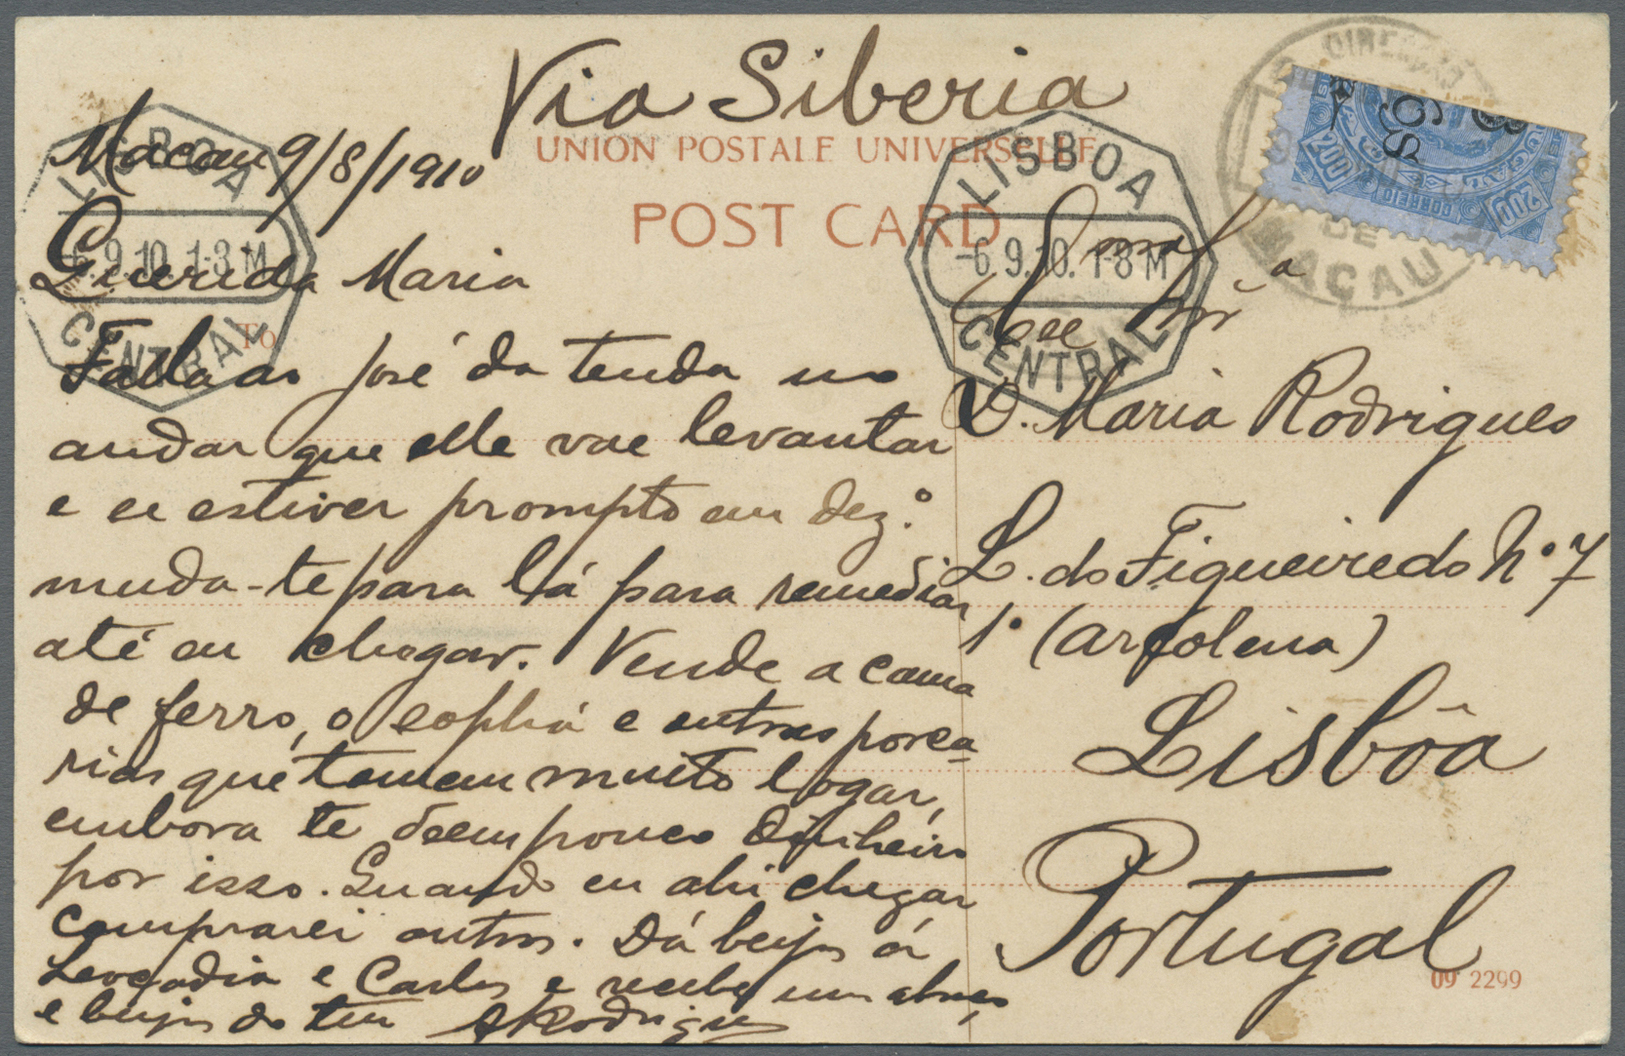 Via Siberia
UNION POSTALE UNIVERSELLE
POST CARD
To
Macau 9/8/1910
Querida Maria
Falla ao José da tenda no
andar que elle vae levantar
e se estiver prompto em dez.º
muda-te para lá para remediar
até eu chegar. Vende a cama
de ferro, o sophá e outras porca
rias que tomem muito logar,
embora te deem pouco dinheiro
por isso. Quando eu ahi chegar
comprarei outros. Dá beijos á
Leocadia e Carlos e recebe um abraço
e beijos do teu ARodrigues
LISBOA
-6.9.10. 1-3 M
CENTRAL
LISBOA
-6.9.10. 1-8 M
CENTRAL
DIRECÇÃO
DE
MACAU
200
CORREIO
200
Exma
Sra
D. Maria Rodrigues
L. do Figueiredo Nº 7
1º (Arfolena)
Lisbôa
Portugal
09 2299